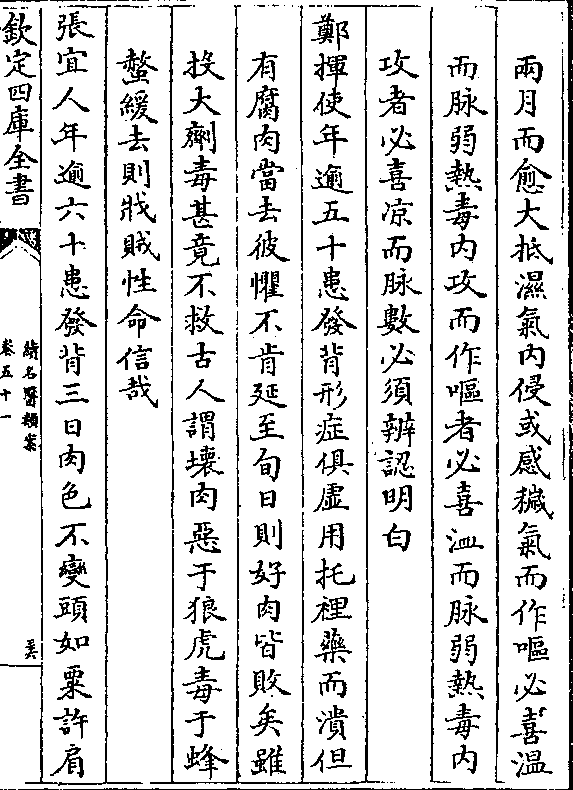 兩月而愈大抵濕氣內侵或感穢氣而作嘔必喜溫
而脉弱熱毒內攻而作嘔者必喜溫而脉弱熱毒內
攻者必喜凉而脉數必須辨認明白
鄭揮使年逾五十患發背形症俱虛用托裡藥而潰但
有腐肉當去彼懼不肯延至旬日則好肉皆敗矣雖
投大劑毒甚竟不救古人謂壊肉惡于狼虎毒于蜂
螫緩去則戕賊性命信哉
張宜人年逾六十患發背三日肉色不變頭如粟許肩
欽定四庫全書
續名醫類案
卷五十一